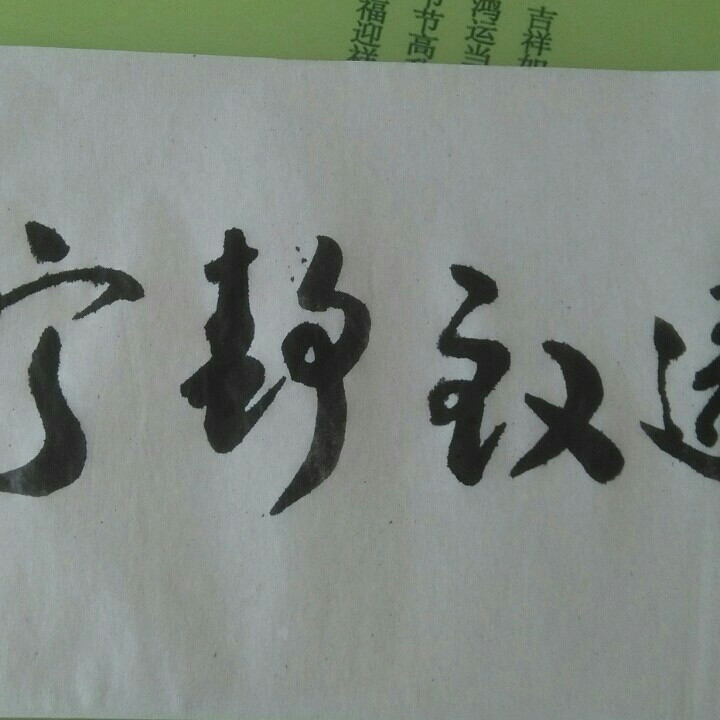 吉祥如
鸿运当
节高
福迎祥
宁静致远